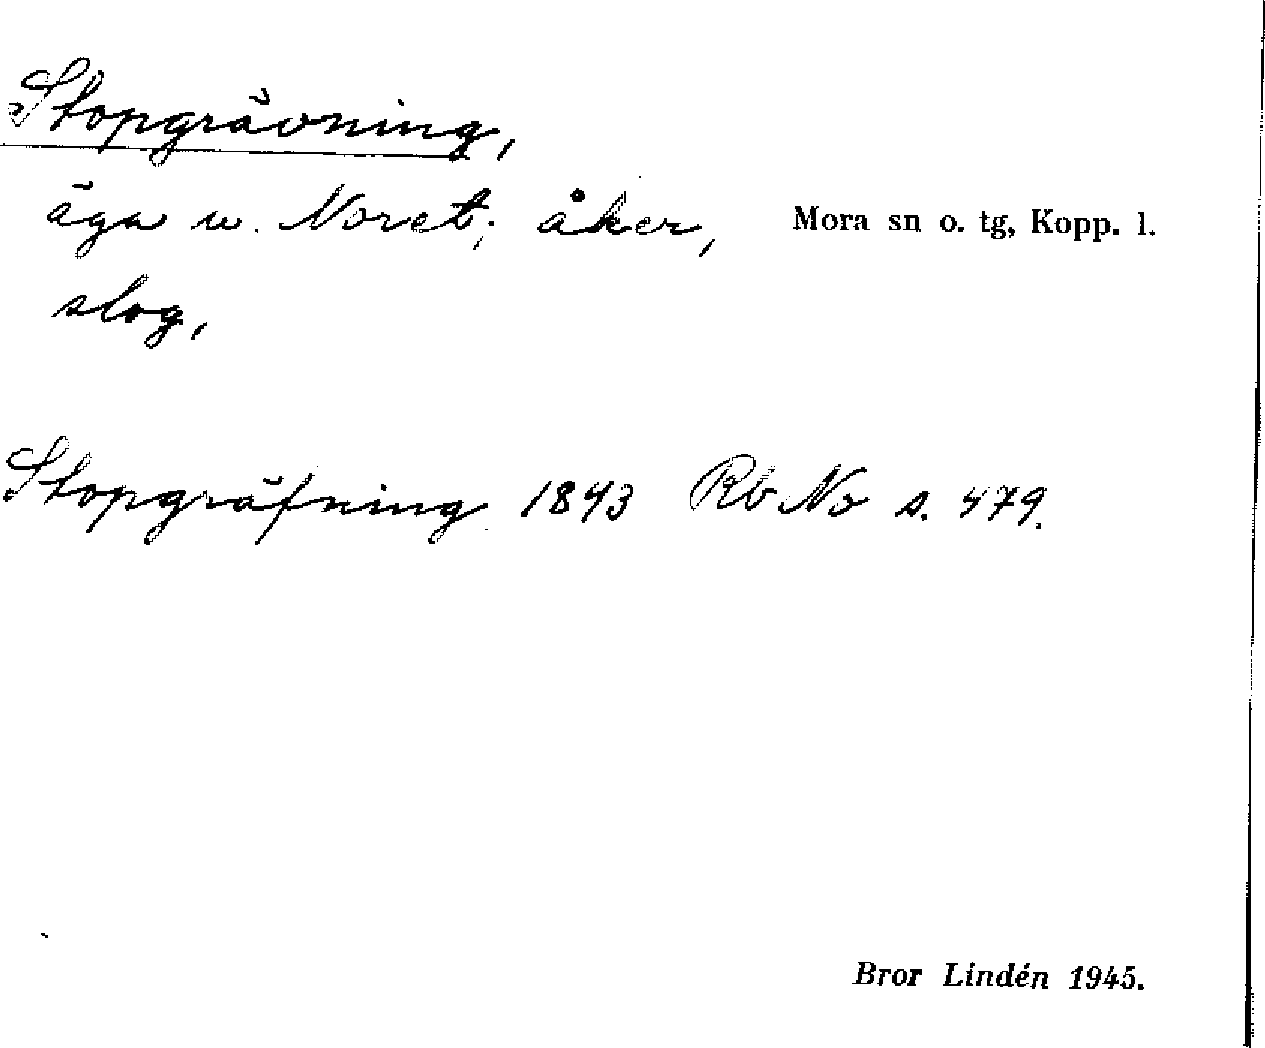 Stopgrävning,
äga u. Noret; åker,
Mora sn o. tg, Kopp. l.
slog,
Stopgräfning 1843 Rb No s. 479.
Bror Lindén 1945.